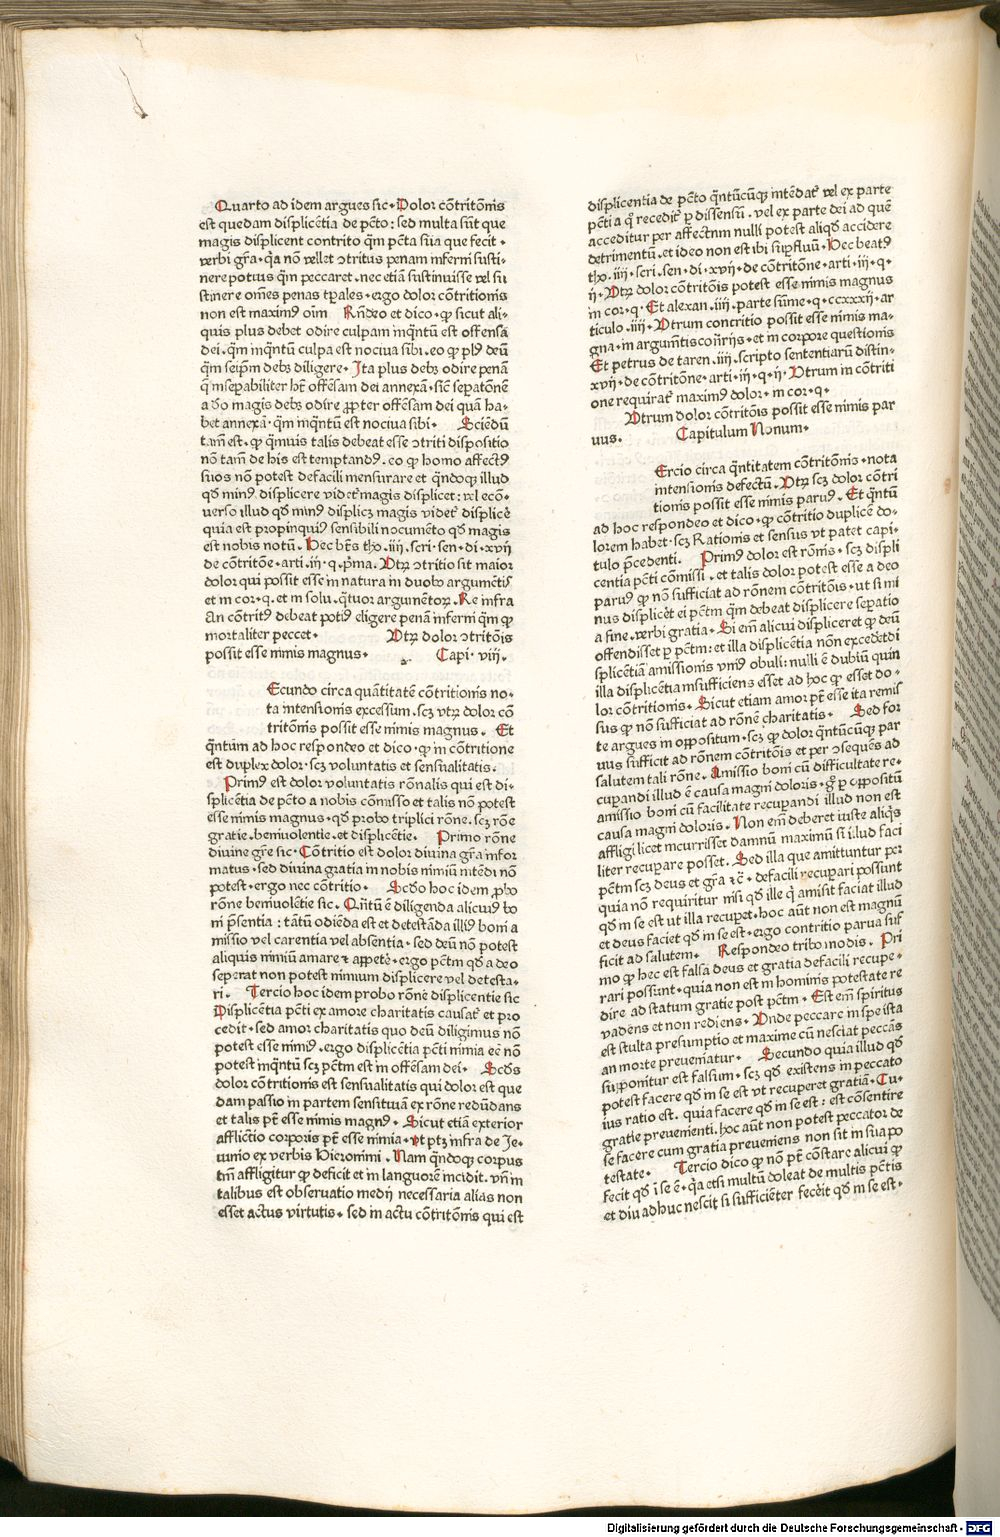 Quarto ad idem argues sic. Dolor cõtritõnis
est quedam displicẽtia de pctõ : sed multa sũt que
magis displicent contrito q̃m pctã sua que fecit .
verbi gr̃a . qa nõ vellet ɔtritus penam inferni susti-
nere potius q̃m peccaret . nec etiã sustinuisse vel su
stinere om̃es penas tp̃ales . ergo dolor cõtritionis
non est maximꝰ oĩm Rñdeo et dico . ꝙ sicut ali-
quis plus debet odire culpam inq̃ntũ est offensa
dei . q̃m inq̃ntũ culpa est nociua sibi . eo ꝙ plꝰ deũ
q̃m seip̃m debꝫ diligere . Ita plus debꝫ odire penã
q̃ inseꝑabiliter hẽt offẽsam dei annexã . sic̃ seꝑatõnẽ
a dõ magis debꝫ odire ꝓpter offẽsam dei quã ha-
bet annexã . q̃m inq̃ntũ est nociua sibi . Sciẽdũ
tam̃ est . ꝙ q̃muis talis debeat esse ɔtriti dispositio
nõ tam̃ de his est temptandꝰ . eo ꝙ homo affectꝰ
suos nõ potest defacili mensurare et q̃ndoqꝫ illud
qd̃ minꝰ displicere videt᷑ magis displicet : vel ecõ-
uerso illud qd̃ minꝰ displicꝫ magis videt᷑ displicẽ
quia est propinquiꝰ sensibili nocumẽto qd̃ magis
est nobis notũ . Hec bt̃s tho . iiij . scri . sen . di . xvij
de cõtritõe . arti . iij . q . p̃ma . Vtꝝ ɔtritio sit maior
dolor qui possit esse in natura in duobꝰ argumẽtis
et in cor . q . et in solu . q̃tuor argumẽtoꝝ . Re infra
An cõtritꝰ debeat potiꝰ eligere penã inferni q̃m ꝙ
mortaliter peccet . Vtꝝ dolor ɔtritõis
possit esse nimis magnus . Capi . viij .
Ecundo circa quãtitatẽ cõtritionis no-
ta intensionis excessum . scꝫ vtꝝ dolor cõ
tritõnis possit esse nimis magnus . Et
q̃ntum ad hoc respondeo et dico . ꝙ in cõtritione
est duplex dolor . scꝫ voluntatis et sensualitatis .
Primꝰ est dolor voluntatis rõnalis qui est di-
splicẽtia de pctõ a nobis cõmisso et talis nõ potest
esse nimis magnus . qd̃ probo triplici rõne . scꝫ rõe
gratie . beniuolentie . et displicẽtie . Primo rõne
diuine gr̃e sic . Cõtritio est dolor diuina gr̃a infor
matus . sed diuina gratia in nobis nimiũ intẽdi nõ
potest . ergo nec cõtritio . Scd̃o hoc idem ꝓbo
rõne beniuolẽtie sic . Qñtũ ẽ diligenda alicuiꝰ bo
ni p̃sentia : tãtũ odiẽda est et detestãda illiꝰ boni a
missio vel carentia vel absentia . sed deũ nõ potest
aliquis nimiũ amare ⁊ appetẽ . ergo pctm̃ qd̃ a deo
seperat non potest nimium displicere vel detesta-
ri . Tercio hoc idem probo rõne displicentie sic
Displicẽtia pctĩ ex amore charitatis causat᷑ et pro
cedit . sed amor charitatis quo deũ diligimus nõ
potest esse nimiꝰ . ergo displicẽtia pctĩ nimia eẽ nõ
potest inq̃ntũ scꝫ pctm̃ est in offẽsam dei . Scd̃s
dolor cõtritionis est sensualitatis qui dolor est que
dam passio in partem sensitiuã ex rõne redũdans
et talis pt̃ esse nimis magnꝰ . Sicut etiã exterior
afflictio corporis pt̃ esse nimia . vt ptꝫ infra de Je-
iunio ex verbis Hieronimi . Nam q̃ndoqꝫ corpus
tm̃ affligitur ꝙ deficit et in languorẽ incidit . vñ in
talibus est obseruatio medij necessaria alias non
esset actus virtutis . sed in actu cõtritõnis qui est
displicentia de pctõ q̃ntũcũqꝫ intẽdat᷑ vel ex parte
pctĩ a q̃ recedit᷑ ꝑ dissensũ . vel ex parte dei ad quẽ
acceditur per affectum nulli potest aliqd̃ accidere
detrimentũ . et ideo non est ibi suꝑfluũ . Hec beatꝰ
tho . iiij . scri . sen . di . xvij . de cõtritõne . arti . iij . q .
ij . Vtꝝ dolor cõtritõis potest esse nimis magnus
in cor . q . Et alexan . iiij . parte sum̃e . q . ccxxxij . ar
ticulo . iiij . Vtrum contritio possit esse nimis ma-
gna . in argumẽtis cõñrijs . et in corpore questionis
Et petrus de taren . iiij . scripto sententiarũ distin-
xvij . de cõtritõne . arti . iij . q . ij . Vtrum in cõtriti
one requirat᷑ maximꝰ dolor . in cor . q .
Vtrum dolor cõtritõis possit esse nimis par
uus . Capitulum Nonum .
Ercio circa q̃ntitatem cõtritõnis . nota
intensionis defectũ . Vtꝝ scꝫ dolor cõtri
tionis possit esse nimis paruꝰ . Et q̃ntũ
ad hoc respondeo et dico . ꝙ cõtritio duplicẽ do-
lorem habet . scꝫ Rationis et sensus vt patet capi-
tulo p̃cedenti . Primꝰ dolor est rõnis . scꝫ displi
centia pctĩ cõmissi . et talis dolor potest esse a deo
paruꝰ ꝙ nõ sufficiat ad rõnem cõtritõis . ut si mi
nus displicẽt ei pctm̃ q̃m debeat displicere seꝑatio
a fine . verbi gratia . Si em̃ alicui displiceret ꝙ deũ
offendisset ꝑ pctm̃ : et illa displicẽtia nõn excedet di
splicẽtiã amissionis vniꝰ obuli : nulli ẽ dubiũ quin
illa displicẽtia insufficiens esset ad hoc ꝙ esset do-
lor cõtritionis . Sicut etiam amor pt̃ esse ita remis
sus ꝙ nõ sufficiat ad rõnẽ charitatis . Sed for
te argues in oppositum . scꝫ ꝙ dolor q̃ntũcũqꝫ par
uus sufficit ad rõnem cõtritõis et per ɔsequẽs ad
salutem tali rõne . Amissio boni cũ difficultate re-
cuꝑandi illud ẽ causa magni doloris . gͦ ꝑ oppositũ
amissio boni cũ facilitate recupandi illud non est
causa magni doloris . Non em̃ deberet iuste aliqͥs
affligi licet incurrisset damnũ maximũ si illud faci
liter recupare posset . Sed illa que amittuntur per
pctm̃ scꝫ deus et gr̃a ⁊c̃ . defacili recupari possunt
quia nõn requiritur nisi qd̃ ille qͥ amisit faciat illud
qd̃ in se est ut illa recupet . hoc aũt non est magnũ
et deus faciet qd̃ in se est . ergo contritio parua suf
ficit ad salutem . Respondeo tribꝰ modis . Pri
mo ꝙ hec est falsa deus et gratia defacili recupe-
rari possunt . quia non est in hominis potestate re
dire ad statum gratie post pctm̃ . Est em̃ spiritus
vadens et non rediens . Vnde peccare in spe ista
est stulta presumptio et maxime cũ nesciat peccãs
an morte preueniatur . Secundo quia illud qd̃
supponitur est falsum . scꝫ qd̃ existens in peccato
potest facere qd̃ in se est vt recuperet gratiã . Cu-
ius ratio est . quia facere qd̃ in se est : est cõsentire
gratie preuenienti . hoc aũt non potest peccator de
se facere cum gratia preueniens non sit in sua po
testate . Tercio dico ꝙ nõ pt̃ constare alicui ꝙ
fecit qd̃ ĩ se ẽ . q̃a etsi multũ doleat de multis pctĩs
et diu adhuc nescit si sufficiẽter fecẽit qd̃ in se est .
Digitalisierung gefördert durch die Deutsche Forschungsgemeinschaft - DFG